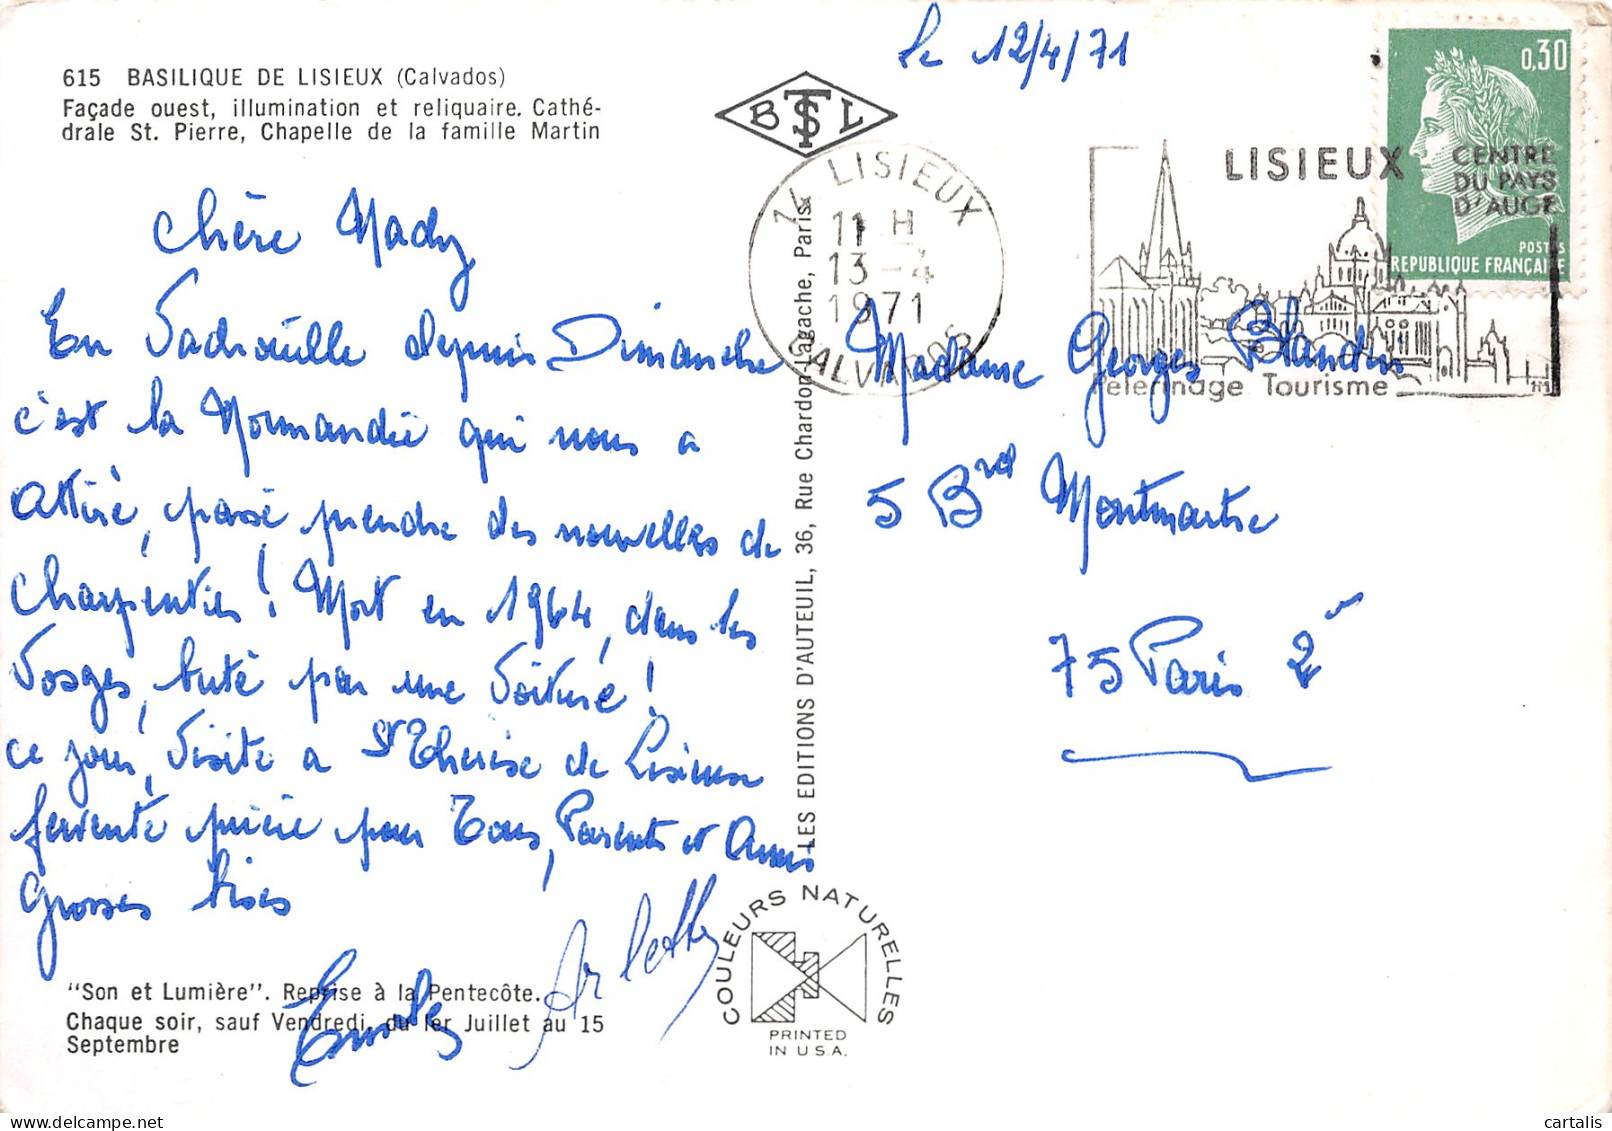 le 12/4/71
615 BASILIQUE DE LISIEUX (Calvados)
Façade ouest, illumination et reliquaire. Cathé-
drale St. Pierre, Chapelle de la famille Martin
B TS L
0,30
POSTES
REPUBLIQUE FRANÇAISE
14 LISIEUX
11 H
13-4
1971
CALVADOS
LISIEUX CENTRE
DU PAYS
D'AUGE
Pelerinage Tourisme
chère Mady
En Vadrouille depuis Dimanche
c'est la Normandie qui nous a
attiré, passé prendre des nouvelles de
Charpentier! Mort en 1964, dans les
Vosges, buté par une Voiture!
ce jour, Visite a St Thérèse de Lisieux
fervente prière pour Tous, Parents et Amis
Grosses bises
Arlette
Madame Georges Blandin
5 Brd Montmartre
75 Paris 2
LES EDITIONS D'AUTEUIL, 36, Rue Chardon-Lagache, Paris
"Son et Lumière". Reprise à la Pentecôte.
Chaque soir, sauf Vendredi, du 1er Juillet au 15
Septembre
COULEURS NATURELLES
PRINTED
IN U.S.A.
delcampe.net
cartalis